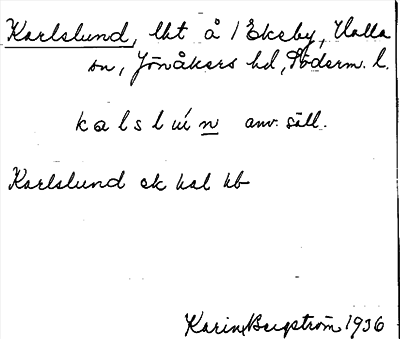 Karlslund, lht å 1 Ekeby, Halla
sn, Jönåkers hd, Söderm. l.
kalslún anv. säll.
Karlslund ek kal hb
Karin Bergström 1936